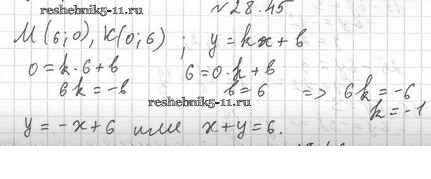 reshebnik5-11.ru
№28.45
М(6;0), К(0;6) ; y = kx + b
0 = k·6 + b 6 = 0·k + b
6k = -b b = 6 => 6k = -6
reshebnik5-11.ru
k = -1
y = -x + 6 или x + y = 6.